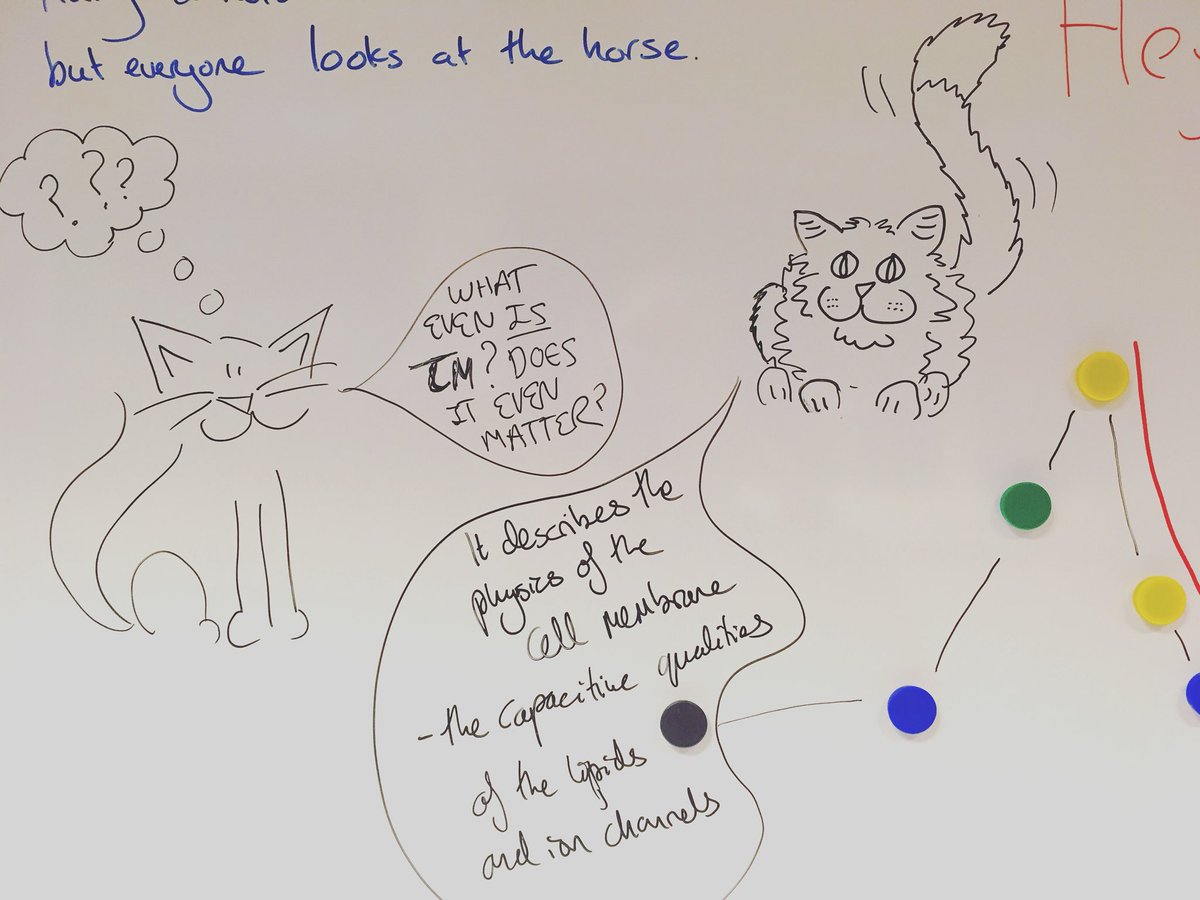 but everyone looks at the horse.
Hey
? ? ?
WHAT
EVEN IS
IM? DOES
IT EVEN
MATTER?
It describes the
physics of the
cell membrane
- the capacitive qualities
of the lipids
and ion channels